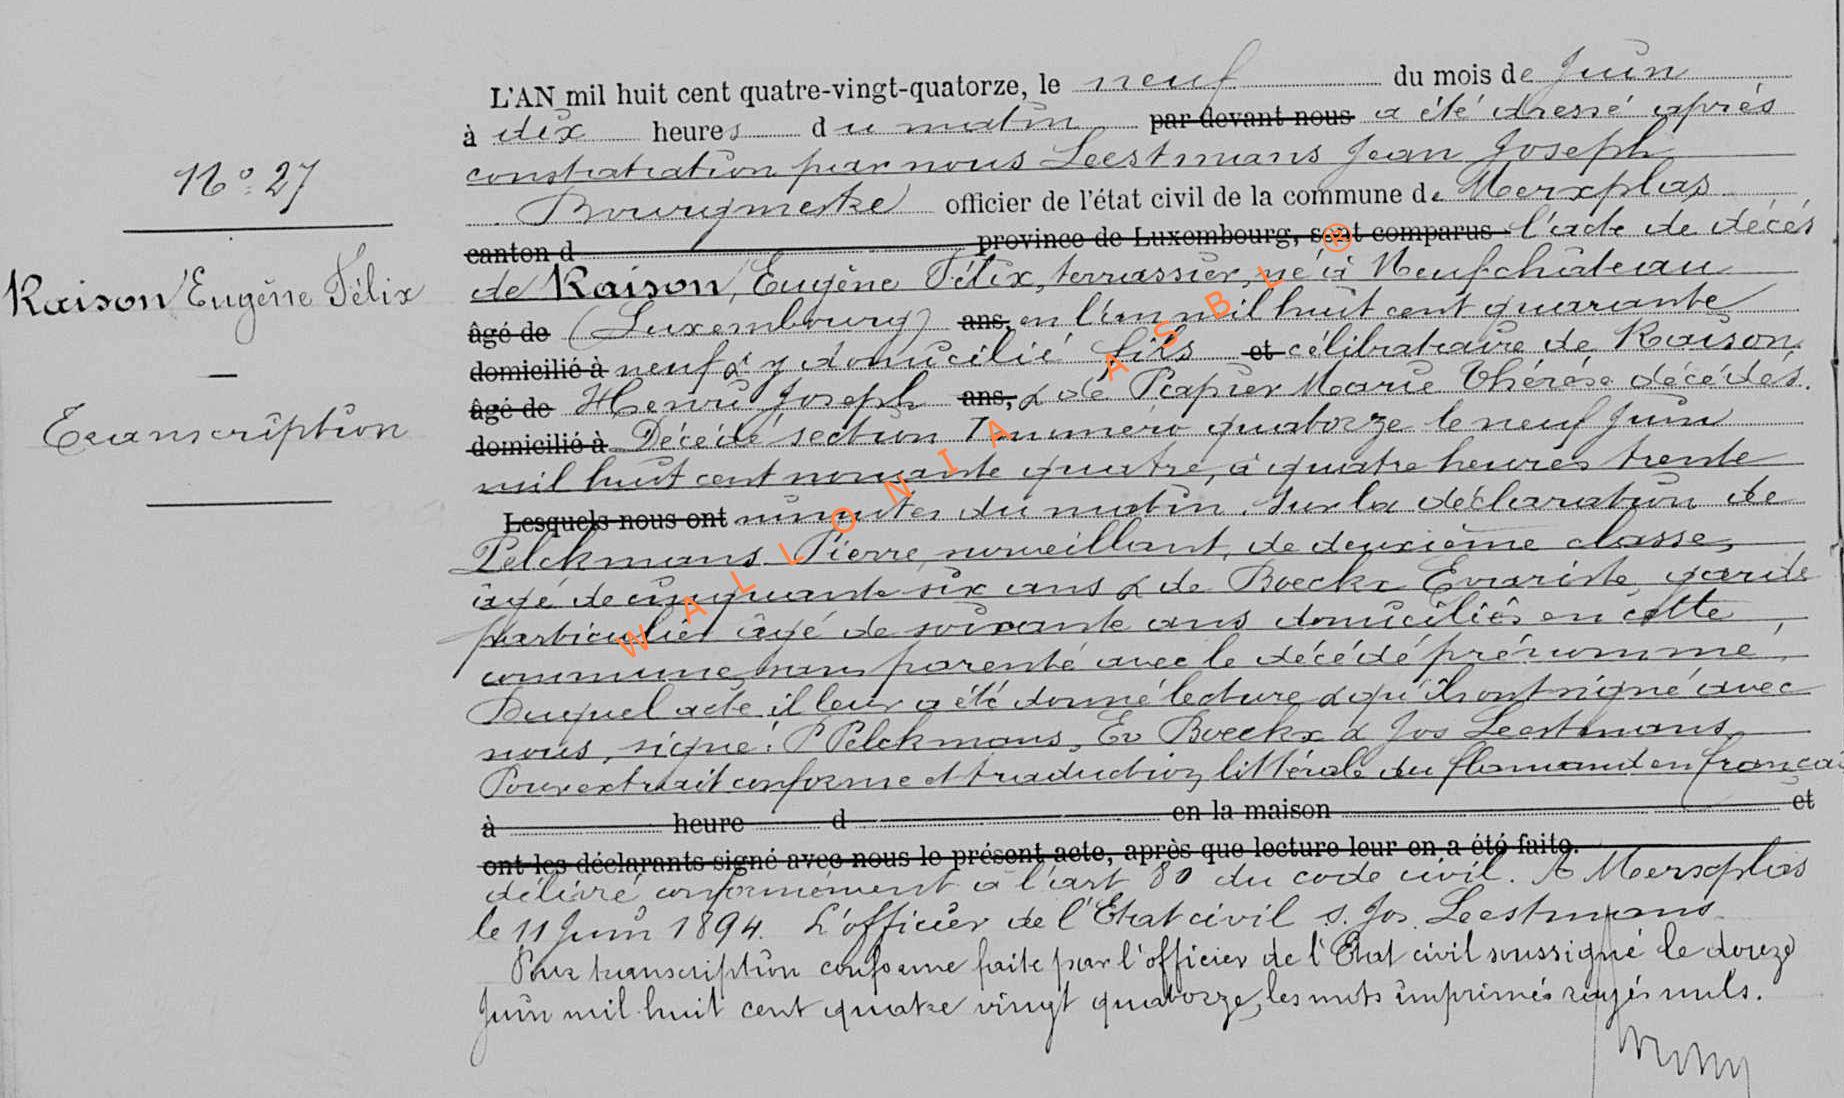 L'AN mil huit cent quatre-vingt-quatorze, le neuf du mois de Juin
à dix heures du matin par devant nous a été dressé après
constatation par nous Leestmans Jean Joseph
N° 27
Bourgmestre officier de l'état civil de la commune de Merxplas
canton d province de Luxembourg, sont comparus l'acte de décés
de Raison, Eugène Félix, terrassier, né à Neufchâteau
Raison Eugêne Félix
âgé de (Luxembourg) ans, en l'an mil huit cent quarante
domicilié à neuf & y domicilié fils et célibataire de Raison
âgé de Henri Joseph ans, & de Pcapier Marie Thérèse décédés.
Transcription
domicilié à Décédé section 7 numéro quatorze le neuf Juin
mil huit cent nonante quatre, à quatre heures trente
Lesquels nous ont minutes du matin. Sur la déclaration de
Pelckmans Pierre, surveillant, de deuxième classe,
âgé de cinquante six ans & de Boeckx Evariste garde
particulier âgé de soixante ans domiciliés en cette
commune, sans parenté avec le décédé prénommé,
Duquel acte il leur a été donné lecture & qu'ils ont signé avec
nous, signé: P Pelckmans, Ev Boeckx & Jos Leestmans
Pour extrait conforme et traduction littérale du flamand en françai
à heure d en la maison et
ont les déclarants signé avec nous le présent acte, après que lecture leur en a été faite.
délivré conformément à l'art 80 du code civil. A Merxplas
le 11 Juin 1894. L'officier de l'Etat civil s. Jos. Leestmans
Pour transcription conforme faite par l'officier de l'Etat civil soussigné le douze
Juin mil huit cent quatre vingt quatorze, les mots imprimés rayés nuls.
WALLONIA ASBL ®